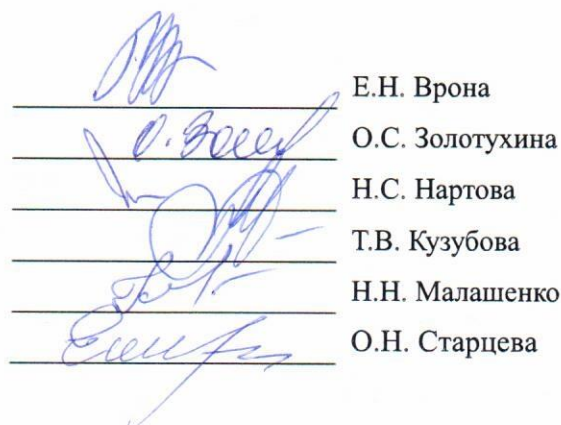 Е.Н. Врона
О.С. Золотухина
Н.С. Нартова
Т.В. Кузубова
Н.Н. Малашенко
О.Н. Старцева